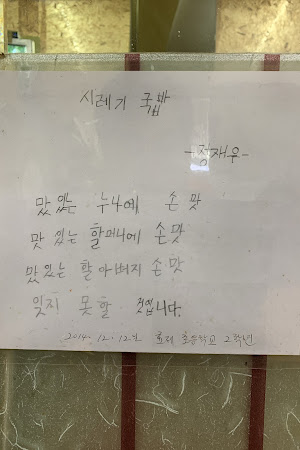 시레기 국밥
-정재우-
맛있는 누나에 손맛
맛있는 할머니에 손맛
맛있는 할아버지 손맛
잊지 못할 것입니다.
2014. 12. 12. 초등학교 2학년